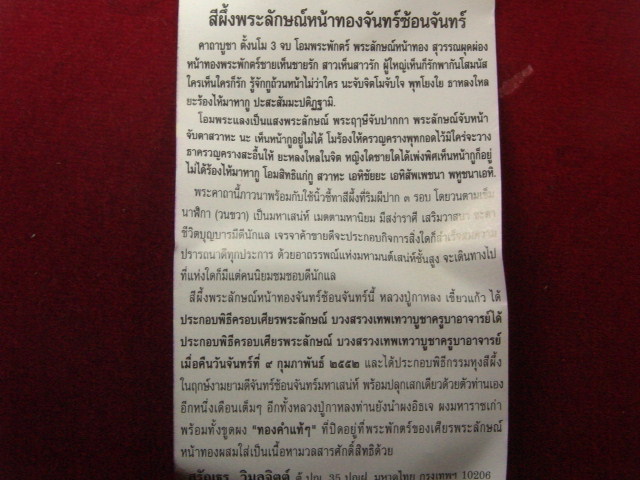 สีผึ้งพระลักษณ์หน้าทองจันทร์ซ้อนจันทร์
คาถาบูชา ตั้งนโม 3 จบ โอมพระพักตร์ พระลักษณ์หน้าทอง สุวรรณผุดผ่อง
หน้าทองพระพักตร์ชายเห็นชายรัก สาวเห็นสาวรัก ผู้ใหญ่เห็นก็รักพากันโสมนัส
ใครเห็นใครก็รัก รู้จักกูถ้วนหน้าไม่ว่าใคร นะจับจิตโมจับใจ พุทโยงใย ธาหลงใหล
ยะร้องไห้มาหากู ปะสะสัมมะปติฏฐามิ.
โอมพระแลงเป็นแสงพระลักษณ์ พระฤาษีจับปากกา พระลักษณ์จับหน้า
จับตาสวาหะ นะ เห็นหน้ากูอยู่ไม่ได้ โมร้องไห้ครวญครางพุทกอดไว้มิใคร่จะวาง
ธาครวญครางสะอื้นไห้ ยะหลงใหลในจิต หญิงใดชายใดได้เพ่งพิศเห็นหน้ากูก็อยู่
ไม่ได้ร้องไห้มาหากู โอมสิทธิแก่กู สวาหะ เอหิชัยยะ เอหิสัพเพชนา พหูชนาเอหิ.
พระคาถานี้ภาวนาพร้อมกับใช้นิ้วชี้ทาสีผึ้งที่ริมฝีปาก ๓ รอบ โดยวนตามเข็ม
นาฬิกา (วนขวา) เป็นมหาเสน่ห์ เมตตามหานิยม มีสง่าราศี เสริมวาสนา ชะตา
ชีวิตบุญบารมีดีนักแล เจรจาค้าขายดีจะประกอบกิจการสิ่งใดก็สำเร็จสมความ
ปรารถนาดีทุกประการ ด้วยอาถรรพณ์แห่งมหามนต์เสน่ห์ชั้นสูง จะเดินทางไป
ที่แห่งใดก็มีแต่คนนิยมชมชอบดีนักแล
สีผึ้งพระลักษณ์หน้าทองจันทร์ซ้อนจันทร์นี้ หลวงปู่กาหลง เขี้ยวแก้ว ได้
ประกอบพิธีครอบเศียรพระลักษณ์ บวงสรวงเทพเทวาบูชาครูบาอาจารย์ได้
ประกอบพิธีครอบเศียรพระลักษณ์ บวงสรวงเทพเทวาบูชาครูบาอาจารย์
เมื่อคืนวันจันทร์ที่ ๙ กุมภาพันธ์ ๒๕๕๒ และได้ประกอบพิธีกรรมหุงสีผึ้ง
ในฤกษ์งามยามดีจันทร์ซ้อนจันทร์มหาเสน่ห์ พร้อมปลุกเสกเดี่ยวด้วยตัวท่านเอง
อีกหนึ่งเดือนเต็มๆ อีกทั้งหลวงปู่กาหลงท่านยังนำผงอิธเจ ผงมหาราชเก่า
พร้อมทั้งขูดผง "ทองคำแท้ๆ" ที่ปิดอยู่ที่พระพักตร์ของเศียรพระลักษณ์
หน้าทองผสมใส่เป็นเนื้อหามวลสารศักดิ์สิทธิ์ด้วย
วิมลจิตต์ ตู้ ปณ. 35 ปณฝ. มหาดไทย กรุงเทพฯ 10206